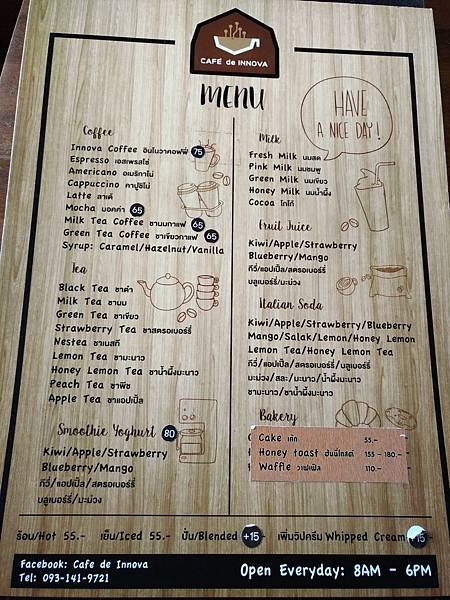 CAFÉ de INNOVA
MENU
HAVE
A NICE DAY!
Coffee
Innova Coffee อินโนวาคอฟฟี่ 75
Espresso เอสเพรสโซ่
Americano อเมริกาโน่
Cappuccino คาปูชิโน่
Latte ลาเต้
Mocha มอคค่า 65
Milk Tea Coffee ชานมกาแฟ 65
Green Tea Coffee ชาเขียวกาแฟ 65
Syrup: Caramel/Hazelnut/Vanilla
Tea
Black Tea ชาดำ
Milk Tea ชานม
Green Tea ชาเขียว
Strawberry Tea ชาสตรอเบอร์รี่
Nestea ชาเนสที
Lemon Tea ชามะนาว
Honey Lemon Tea ชาน้ำผึ้งมะนาว
Peach Tea ชาพีช
Apple Tea ชาแอปเปิ้ล
Smoothie Yoghurt 80
Kiwi/Apple/Strawberry
Blueberry/Mango
กีวี่/แอปเปิ้ล/สตรอเบอร์รี่
บลูเบอร์รี่/มะม่วง
Milk
Fresh Milk นมสด
Pink Milk นมชมพู
Green Milk นมเขียว
Honey Milk นมน้ำผึ้ง
Cocoa โกโก้
Fruit Juice
Kiwi/Apple/Strawberry
Blueberry/Mango
กีวี่/แอปเปิ้ล/สตรอเบอร์รี่
บลูเบอร์รี่/มะม่วง
Italian Soda
Kiwi/Apple/Strawberry/Blueberry
Mango/Salak/Lemon/Honey Lemon
Lemon Tea/Honey Lemon Tea
กีวี่/แอปเปิ้ล/สตรอเบอร์รี่/บลูเบอร์รี่
มะม่วง/สละ/มะนาว/น้ำผึ้งมะนาว
ชามะนาว/ชาน้ำผึ้งมะนาว
Bakery
Cake เค้ก 55.-
Honey toast ฮันนี่โทสต์ 155-180.-
Waffle วาฟเฟิล 110.-
ร้อน/Hot 55.- เย็น/Iced 55.- ปั่น/Blended +15.- เพิ่มวิปครีม Whipped Cream +15.-
Facebook: Cafe de Innova
Tel: 093-141-9721
Open Everyday: 8AM - 6PM